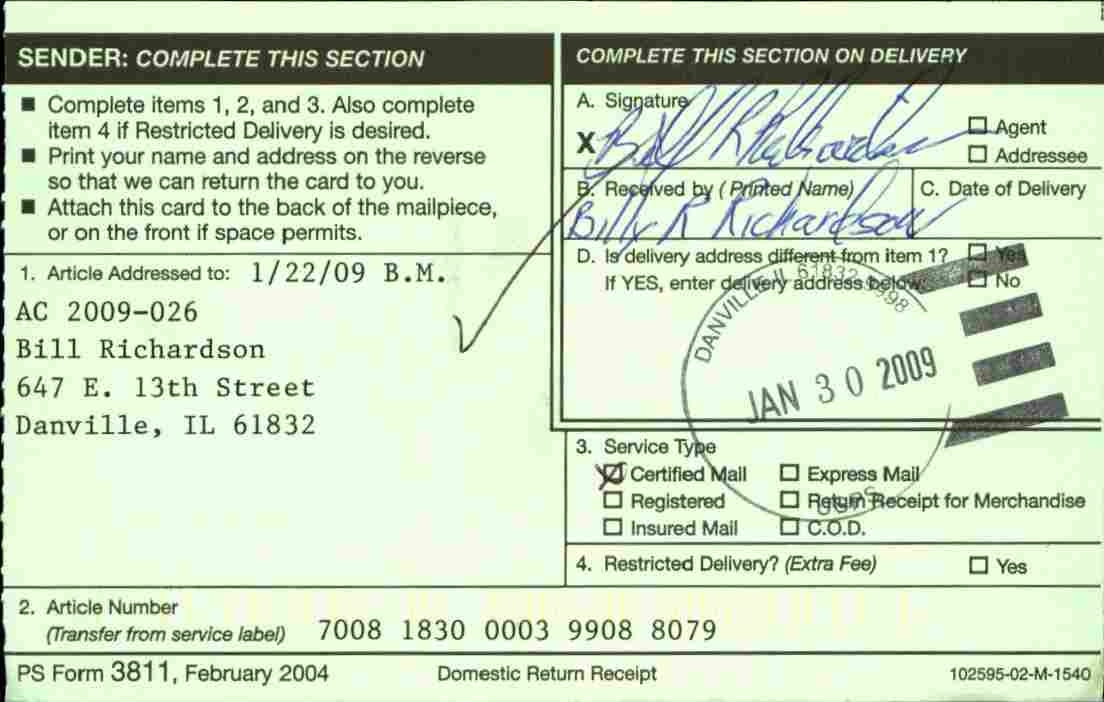 SENDER: COMPLETE THIS SECTION
■ Complete items 1, 2, and 3. Also complete
item 4 if Restricted Delivery is desired.
■ Print your name and address on the reverse
so that we can return the card to you.
■ Attach this card to the back of the mailpiece,
or on the front if space permits.
1. Article Addressed to: 1/22/09 B.M.
AC 2009-026
Bill Richardson
647 E. 13th Street
Danville, IL 61832
COMPLETE THIS SECTION ON DELIVERY
A. Signature
X Bill R Richardson
☐ Agent
☐ Addressee
B. Received by (Printed Name)
Billy R Richardson
C. Date of Delivery
D. Is delivery address different from item 1? ☐ Yes
If YES, enter delivery address below: ☐ No
DANVILLE IL 61832-9998
JAN 30 2009
USPS
3. Service Type
☒ Certified Mail ☐ Express Mail
☐ Registered ☐ Return Receipt for Merchandise
☐ Insured Mail ☐ C.O.D.
4. Restricted Delivery? (Extra Fee) ☐ Yes
2. Article Number
(Transfer from service label) 7008 1830 0003 9908 8079
PS Form 3811, February 2004 Domestic Return Receipt 102595-02-M-1540